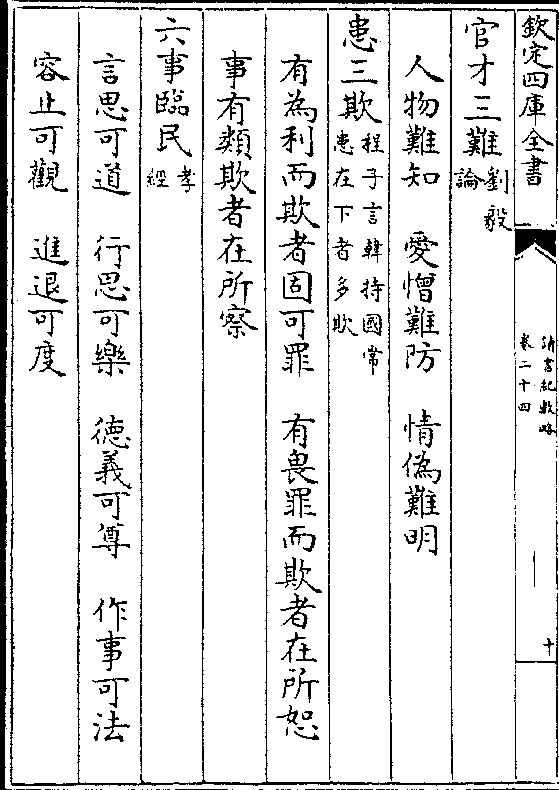 欽定四庫全書
讀書紀數略
卷二十四
十
官才三難劉毅
論
人物難知 愛憎難防 情偽難明
患三欺程子言韓持國常
患在下者多欺
有為利而欺者固可罪 有畏罪而欺者在所恕
事有類欺者在所察
六事臨民孝
經
言思可道 行思可樂 德義可尊 作事可法
容止可觀 進退可度